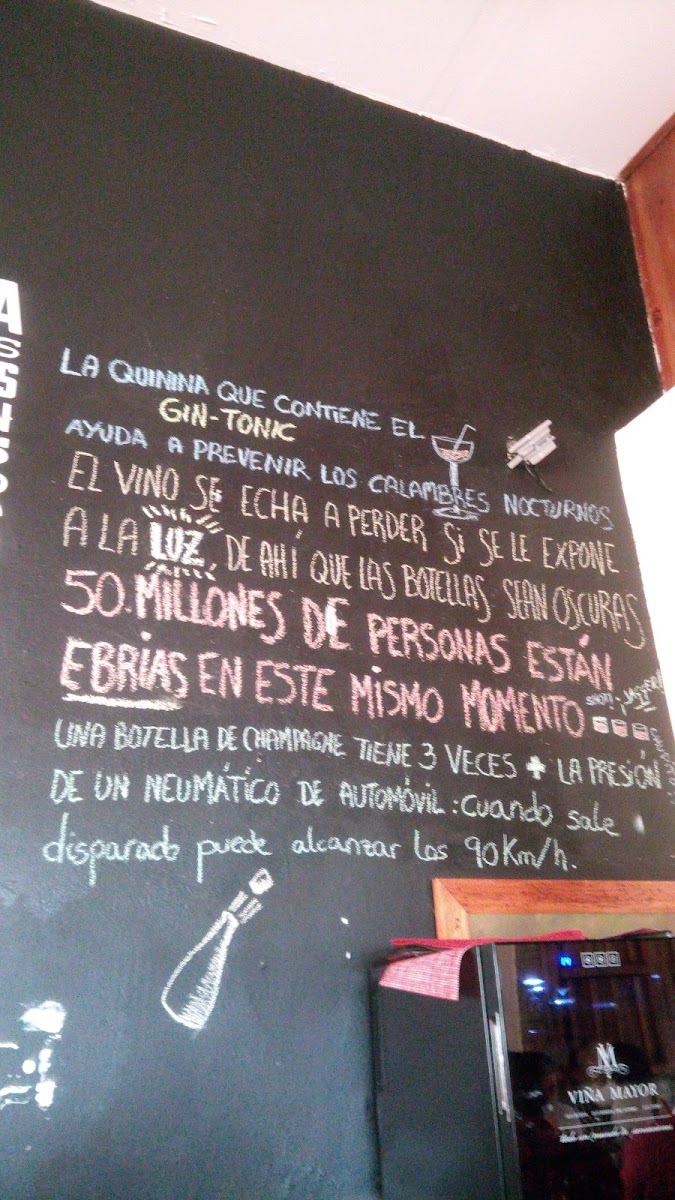 LA QUININA QUE CONTIENE EL
GIN-TONIC
AYUDA A PREVENIR LOS CALAMBRES NOCTURNOS
EL VINO SE ECHA A PERDER SI SE LE EXPONE
A LA LUZ, DE AHÍ QUE LAS BOTELLAS SEAN OSCURAS
50 MILLONES DE PERSONAS ESTÁN
EBRIAS EN ESTE MISMO MOMENTO
UNA BOTELLA DE CHAMPAGNE TIENE 3 VECES + LA PRESIÓN
DE UN NEUMÁTICO DE AUTOMÓVIL: cuando sale
disparado puede alcanzar los 90Km/h.
M
VIÑA MAYOR